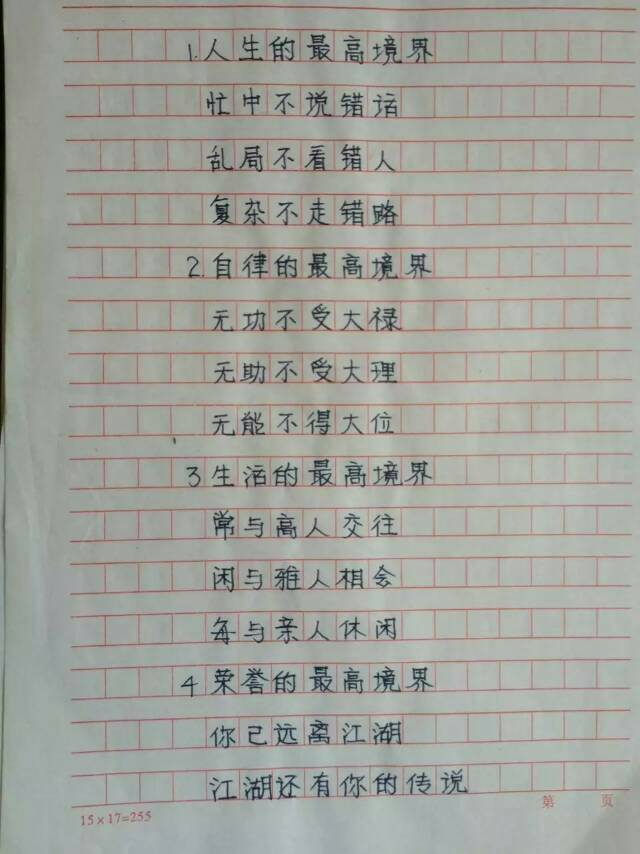 1.人生的最高境界
忙中不说错话
乱局不看错人
复杂不走错路
2.自律的最高境界
无功不受大禄
无助不受大理
无能不得大位
3生活的最高境界
常与高人交往
闲与雅人相会
每与亲人休闲
4荣誉的最高境界
你已远离江湖
江湖还有你的传说
15×17=255
第 页